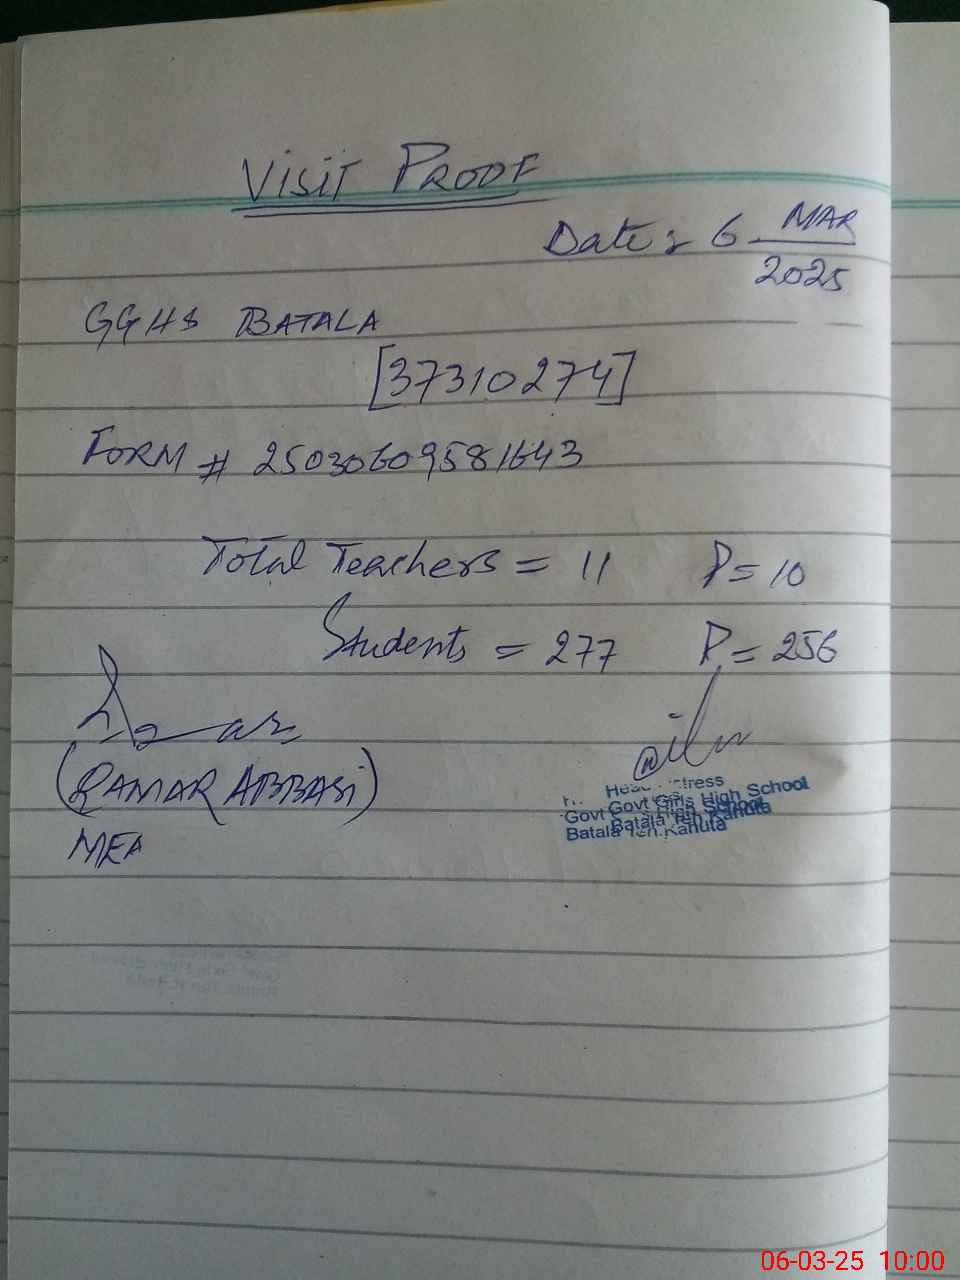 VISIT PROOF
Date: 6 MAR
2025
GGHS BATALA
[37310274]
FORM # 25030609581643
Total Teachers = 11 P= 10
Students = 277 P= 256
(QAMAR ABBASI)
MEA
Govt Girls High School
Batala Teh.Kahuta
06-03-25 10:00